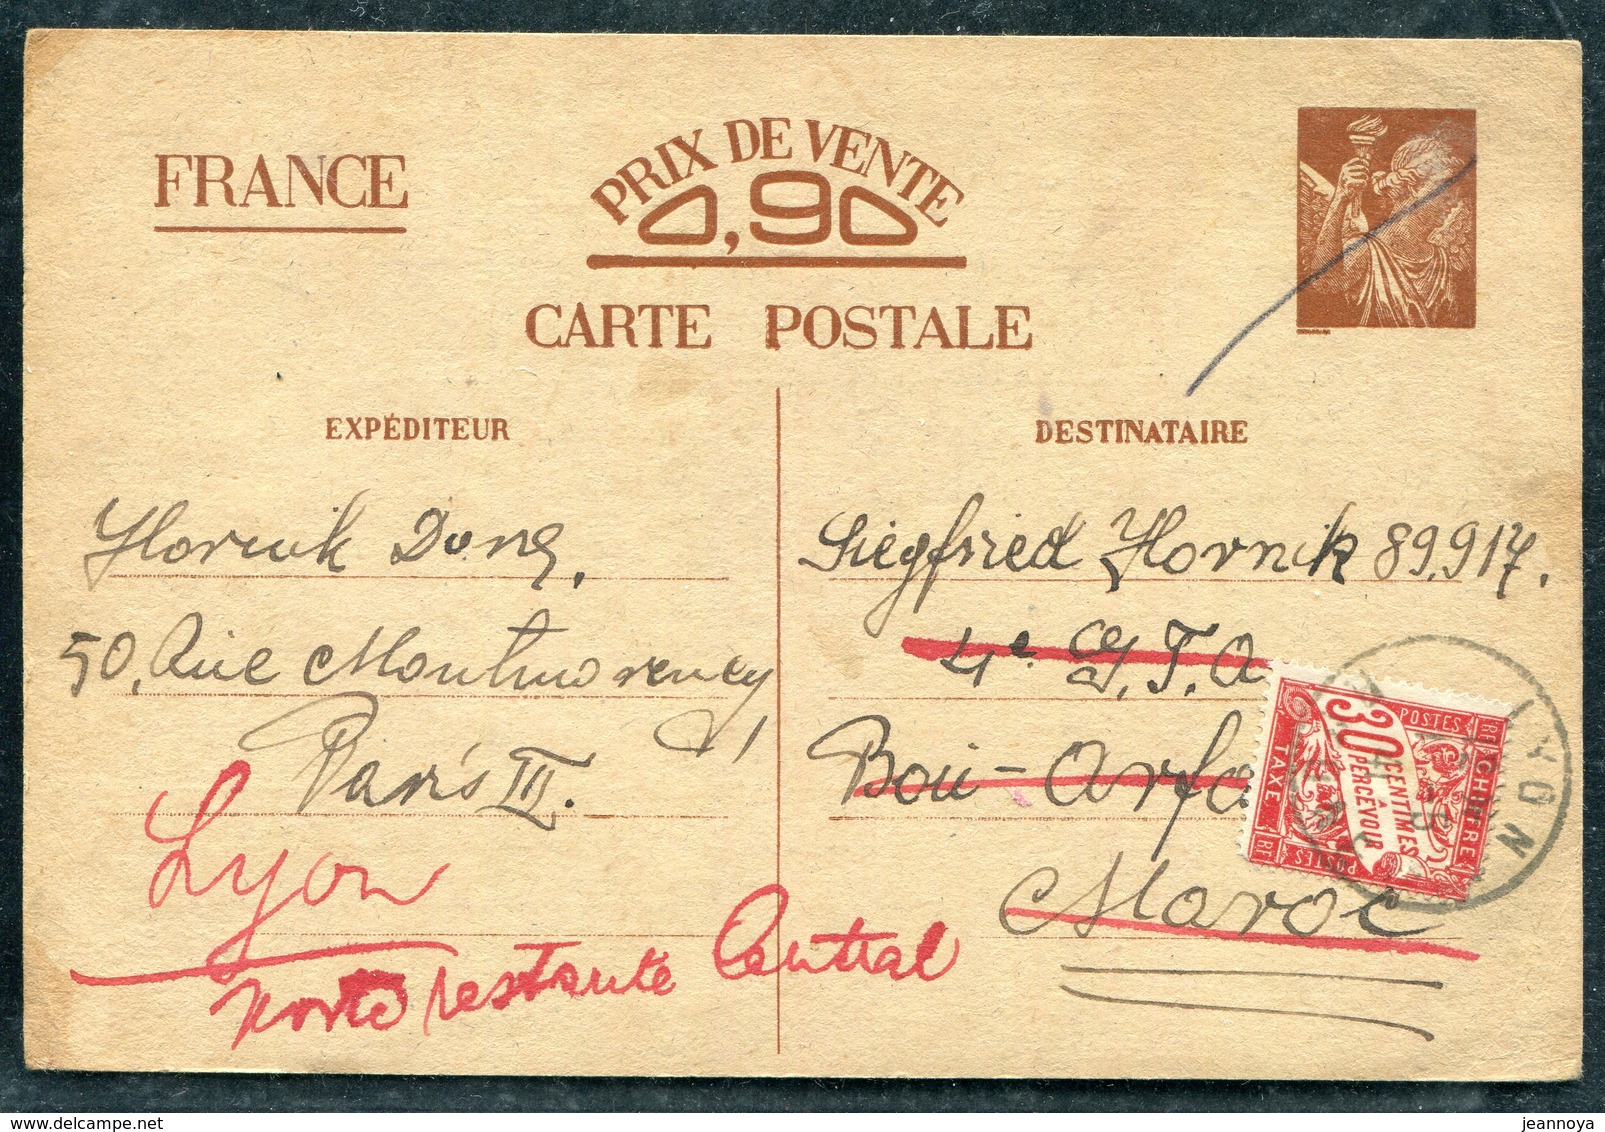 FRANCE
PRIX DE VENTE
0,90
CARTE POSTALE
EXPÉDITEUR
Hornik Dora,
50, Rue Montmorency
Paris III.
Lyon
Poste restante Central
DESTINATAIRE
Siegfried Hornik 89.917.
4e. Cy. T. A
Bou-Arfa
Maroc
POSTES
RE
CHIFFRE
TAXE
30 CENTIMES
À
PERCEVOIR
POSTES
RF
LYON
jeannoya